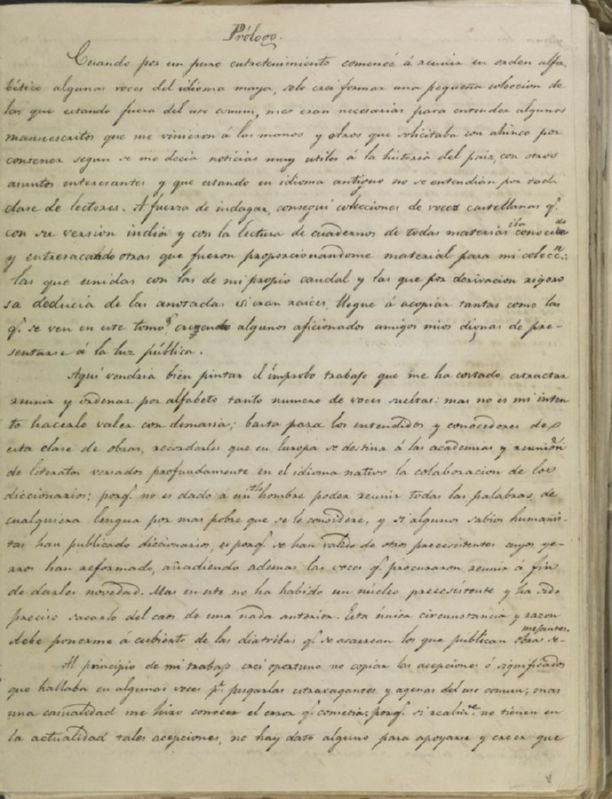 Prólogo.
Cuando por un puro entretenimiento comencé á reunir en orden alfa
bético algunas voces del idioma maya, solo creí formar una pequeña coleccion de
las que estando fuera del uso comun, me eran necesarias para entender algunos
manuescritos que me vinieron á las manos y otros que solicitaba con ahinco por
contener segun se me decia noticias muy utiles á la historia del pais, con otros
asuntos interesantes y que estando en idioma antiguo no se entendian por toda
clase de lectores. A fuerza de indagar, conseguí colecciones de voces castellanas q.
con su version india y con la lectura de cuadernos de todas materias
y entresacando otras que fueron proporcionandome material para mi colecc.n:
las que unidas con las de mi propio caudal y las que por derivacion rigoro
sa deducia de las anotadas si eran raices, llegué á acopiar tantas como las
q. se ven en este tomo q. creyendo algunos aficionados amigos mios dignas de pre-
sentarse á la luz pública.
Aqui vendria bien pintar el ímprobo trabajo que me ha costado extractar
reunir y ordenar por alfabeto tanto numero de voces sueltas: mas no es mi inten
to hacerlo valer con demasia; basta para los entendidos y conocedores de
esta clase de obras, recordarles que en Europa se destina á las academias y reunion
de literatos versados profundamente en el idioma nativo la colaboracion de los
diccionarios; porq. no es dado á un solo hombre poder reunir todas las palabras de
cualquiera lengua por mas pobre que se le considere, y si algunos sabios humanis-
tas han publicado diccionarios, es porq. se han valido de otros preecsistentes cuyos ye-
rros han reformado, añadiendo ademas las voces q. procuraron reunir á fin
de darles novedad. Mas en este no ha habido un núcleo preecsistente y ha sido
preciso sacarlo del caos de una nada anterior. Esta única circunstancia y razon
debe ponerme á cubierto de las diatribas q. se acarrean los que publican obras
Al principio de mi trabajo creí oportuno no copiar las acepciones ó significados
que hallaba en algunas voces p.r juzgarlas estravagantes y agenas del uso comun; mas
una casualidad me hizo conocer el error q. cometia; porq. si realm.te no tienen en
la actualidad tales acepciones, no hay dato alguno para apoyarse y creer que